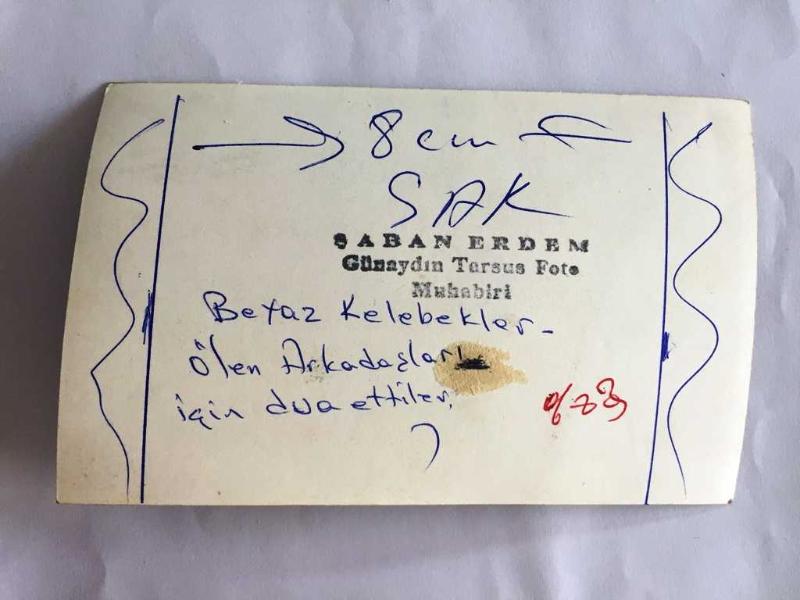 8 cm
SAK
ŞABAN ERDEM
Günaydın Tarsus Foto
Muhabiri
Beyaz Kelebekler -
Ölen Arkadaşları
için dua ettiler.